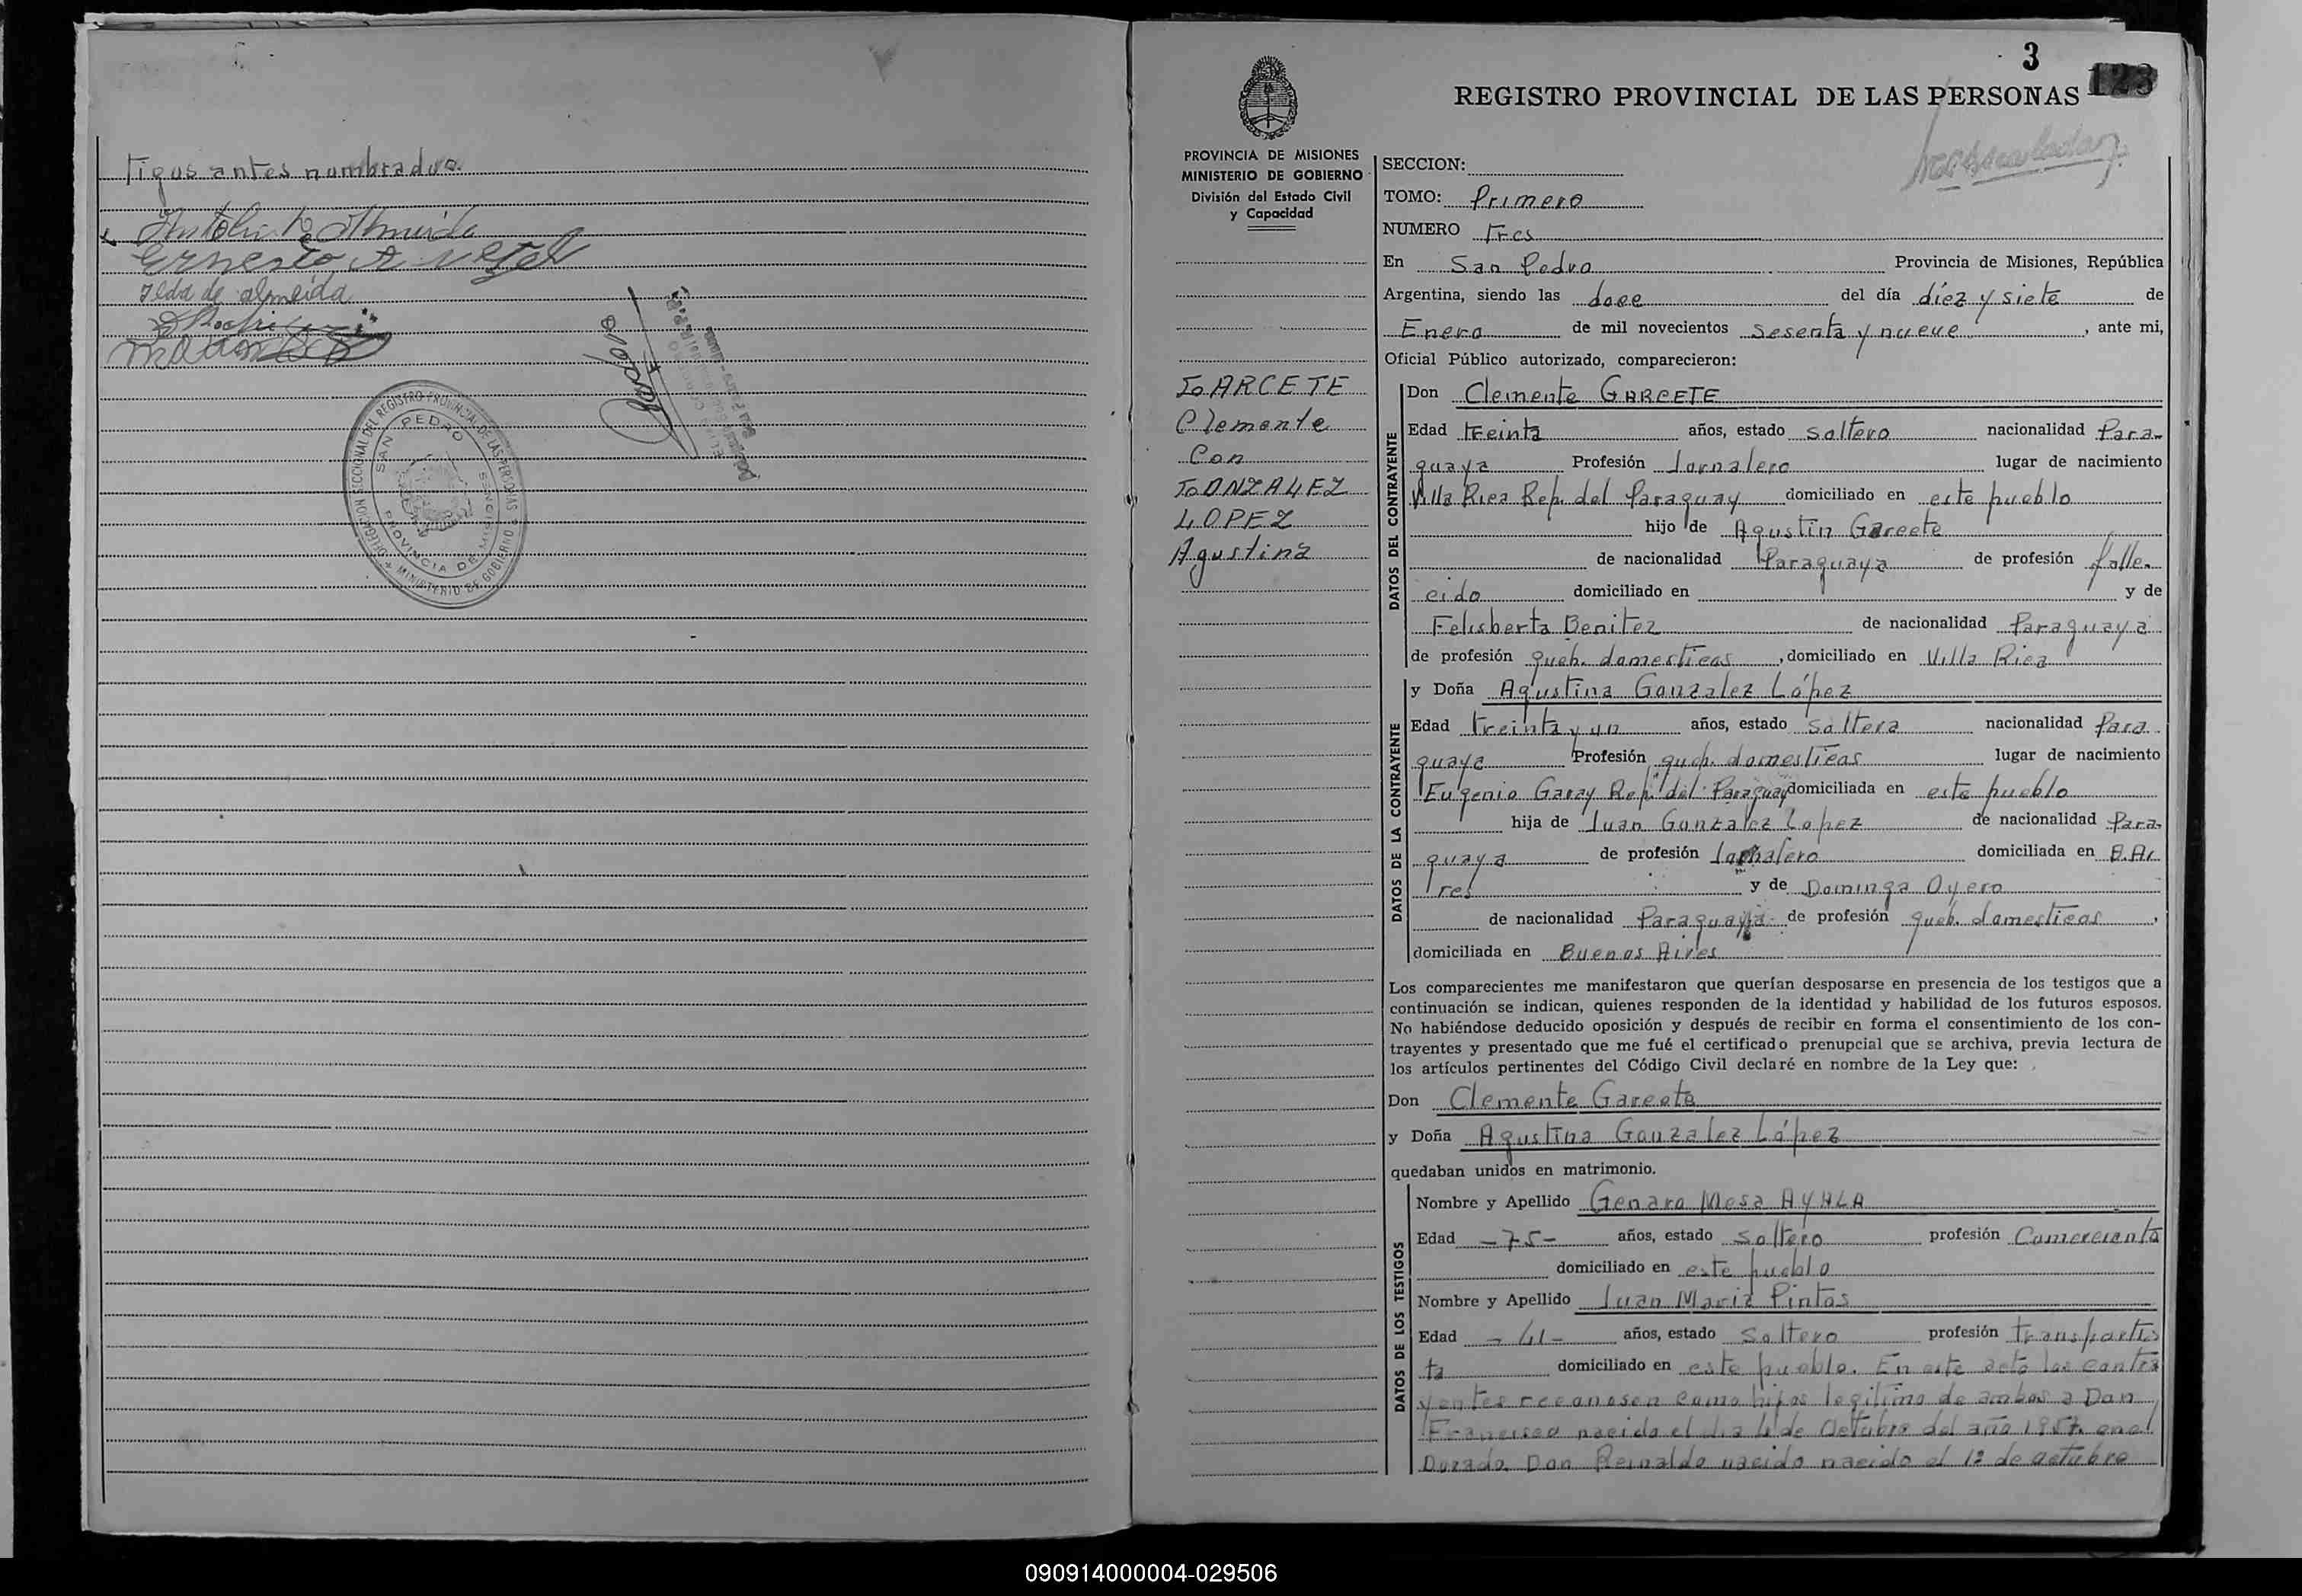 tigos antes nombrados.
Ernesto A
Ilda de almeida
DELEGACION SECCIONAL DEL REGISTRO PROVINCIAL DE LAS PERSONAS
MINISTERIO DE GOBIERNO
SAN PEDRO
PROVINCIA DE MISIONES
3
123
REGISTRO PROVINCIAL DE LAS PERSONAS
PROVINCIA DE MISIONES
MINISTERIO DE GOBIERNO
División del Estado Civil
y Capacidad
GARCETE
Clemente
Con
GONZALEZ
LOPEZ
Agustina
SECCION:
TOMO: Primero
NUMERO Tres
En San Pedro Provincia de Misiones, República
Argentina, siendo las doce del día díez y siete de
Enero de mil novecientos sesenta y nueve, ante mi,
Oficial Público autorizado, comparecieron:
DATOS DEL CONTRAYENTE
Don Clemente GARCETE
Edad treinta años, estado soltero nacionalidad Para-
guaya Profesión Jornalero lugar de nacimiento
Villa Rica Rep. del Paraguay domiciliado en este pueblo
hijo de Agustin Garcete
de nacionalidad Paraguaya de profesión falle-
cido domiciliado en y de
Felisberta Benitez de nacionalidad Paraguaya
de profesión queh. domesticos, domiciliado en Villa Rica
DATOS DE LA CONTRAYENTE
y Doña Agustina Gonzalez López
Edad treinta y un años, estado soltera nacionalidad Para-
guaya Profesión queh. domesticas lugar de nacimiento
Eugenio Garay Rep. del Paraguay domiciliada en este pueblo
hija de Juan Gonzalez Lopez de nacionalidad Para-
guaya de profesión Jornalero domiciliada en B. Ai
res y de Dominga Oyero
de nacionalidad Paraguaya de profesión queh. domesticas,
domiciliada en Buenos Aires
Los comparecientes me manifestaron que querían desposarse en presencia de los testigos que a
continuación se indican, quienes responden de la identidad y habilidad de los futuros esposos.
No habiéndose deducido oposición y después de recibir en forma el consentimiento de los con-
trayentes y presentado que me fué el certificado prenupcial que se archiva, previa lectura de
los artículos pertinentes del Código Civil declaré en nombre de la Ley que:
Don Clemente Garcete
y Doña Agustina Gonzalez López
quedaban unidos en matrimonio.
DATOS DE LOS TESTIGOS
Nombre y Apellido Genaro Mesa AYALA
Edad -75- años, estado soltero profesión Comerciante
domiciliado en este pueblo
Nombre y Apellido Juan Maria Pintos
Edad -41- años, estado soltero profesión transportis
ta domiciliado en este pueblo. En este acto los contra
yentes reconosen como hijos legitimo de ambos a Don
Francisco nacido el dia 4 de Octubre del año 1957. en el
Dorado. Don Reinaldo nacido nacido el 1º de octubre
090914000004-029506